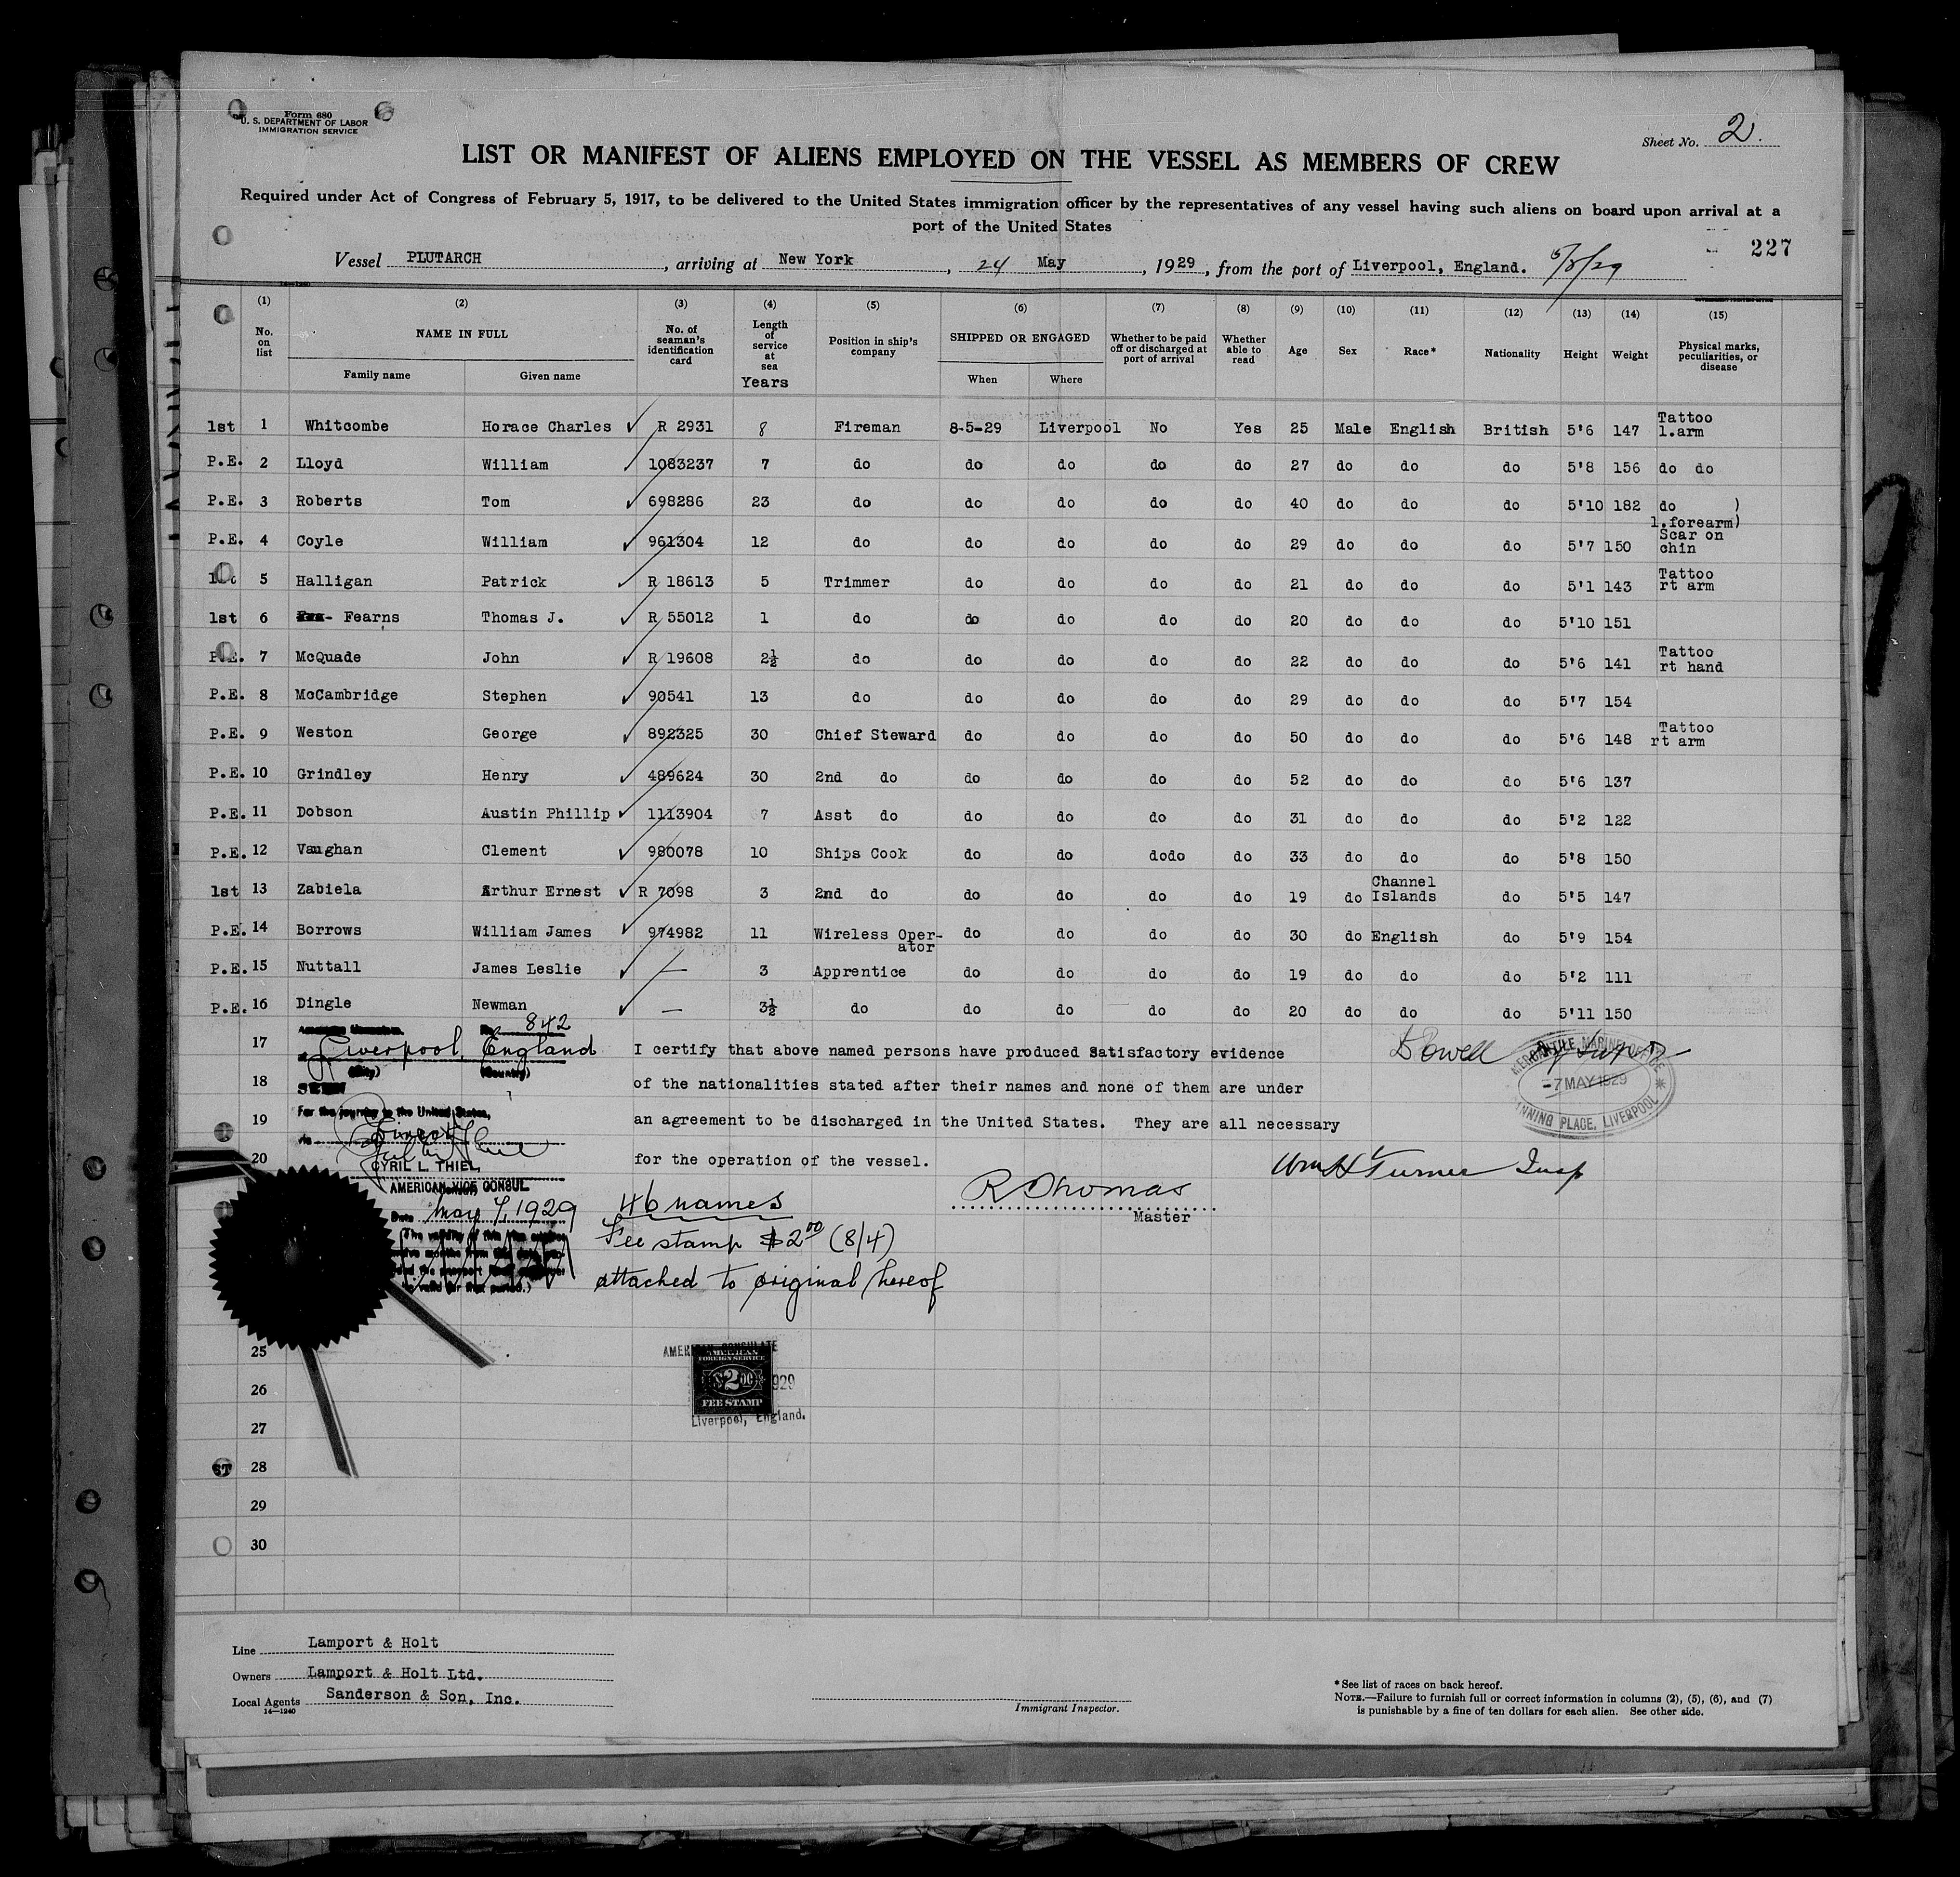 Form 680
U. S. DEPARTMENT OF LABOR
IMMIGRATION SERVICE
Sheet No. 2.
LIST OR MANIFEST OF ALIENS EMPLOYED ON THE VESSEL AS MEMBERS OF CREW
Required under Act of Congress of February 5, 1917, to be delivered to the United States immigration officer by the representatives of any vessel having such aliens on board upon arrival at a
port of the United States
227
Vessel PLUTARCH, arriving at New York, 24 May, 1929, from the port of Liverpool, England.
(1) (2) (3) (4) (5) (6) (7) (8) (9) (10) (11) (12) (13) (14) (15)
No. on list NAME IN FULL Family name Given name No. of seaman's identification card Length of service at sea Years Position in ship's company SHIPPED OR ENGAGED When Where Whether to be paid off or discharged at port of arrival Whether able to read Age Sex Race* Nationality Height Weight Physical marks, peculiarities, or disease
1st 1 Whitcombe Horace Charles R 2931 8 Fireman 8-5-29 Liverpool No Yes 25 Male English British 5'6 147 Tattoo l.arm
P.E. 2 Lloyd William 1083237 7 do do do do do 27 do do do 5'8 156 do do
P.E. 3 Roberts Tom 698286 23 do do do do do 40 do do do 5'10 182 do ) l.forearm)
P.E. 4 Coyle William 961304 12 do do do do do 29 do do do 5'7 150 Scar on chin
5 Halligan Patrick R 18613 5 Trimmer do do do do 21 do do do 5'1 143 Tattoo rt arm
1st 6 Fearns Thomas J. R 55012 1 do do do do do 20 do do do 5'10 151
P.E. 7 McQuade John R 19608 2½ do do do do do 22 do do do 5'6 141 Tattoo rt hand
P.E. 8 McCambridge Stephen 90541 13 do do do do do 29 do do do 5'7 154
P.E. 9 Weston George 892325 30 Chief Steward do do do do 50 do do do 5'6 148 Tattoo rt arm
P.E. 10 Grindley Henry 489624 30 2nd do do do do do 52 do do do 5'6 137
P.E. 11 Dobson Austin Phillip 1113904 7 Asst do do do do do 31 do do do 5'2 122
P.E. 12 Vaughan Clement 980078 10 Ships Cook do do dodo do 33 do do do 5'8 150
1st 13 Zabiela Arthur Ernest R 7098 3 2nd do do do do do 19 do Channel Islands do 5'5 147
P.E. 14 Borrows William James 974982 11 Wireless Oper-ator do do do do 30 do English do 5'9 154
P.E. 15 Nuttall James Leslie — 3 Apprentice do do do do 19 do do do 5'2 111
P.E. 16 Dingle Newman — 3½ do do do do do 20 do do do 5'11 150
842
17 Liverpool, England I certify that above named persons have produced satisfactory evidence
(City) (Country)
18 of the nationalities stated after their names and none of them are under
For the journey to the United States,
19 an agreement to be discharged in the United States. They are all necessary
20 for the operation of the vessel.
MERCANTILE MARINE OFFICE
-7 MAY 1929
CANNING PLACE, LIVERPOOL
Wm H Turner Insp
CYRIL L. THIEL,
AMERICAN VICE CONSUL
R Thomas
Master
Date May 7, 1929
46 names
Fee stamp $2.00 (8/4)
attached to original hereof
25
AMERICAN CONSULATE
AMERICAN
FOREIGN SERVICE
$2.00
FEE STAMP
1929
Liverpool, England.
26
27
28
29
30
Line Lamport & Holt
Owners Lamport & Holt Ltd.
Local Agents Sanderson & Son, Inc.
14—1240
Immigrant Inspector.
*See list of races on back hereof.
NOTE.—Failure to furnish full or correct information in columns (2), (5), (6), and (7)
is punishable by a fine of ten dollars for each alien. See other side.